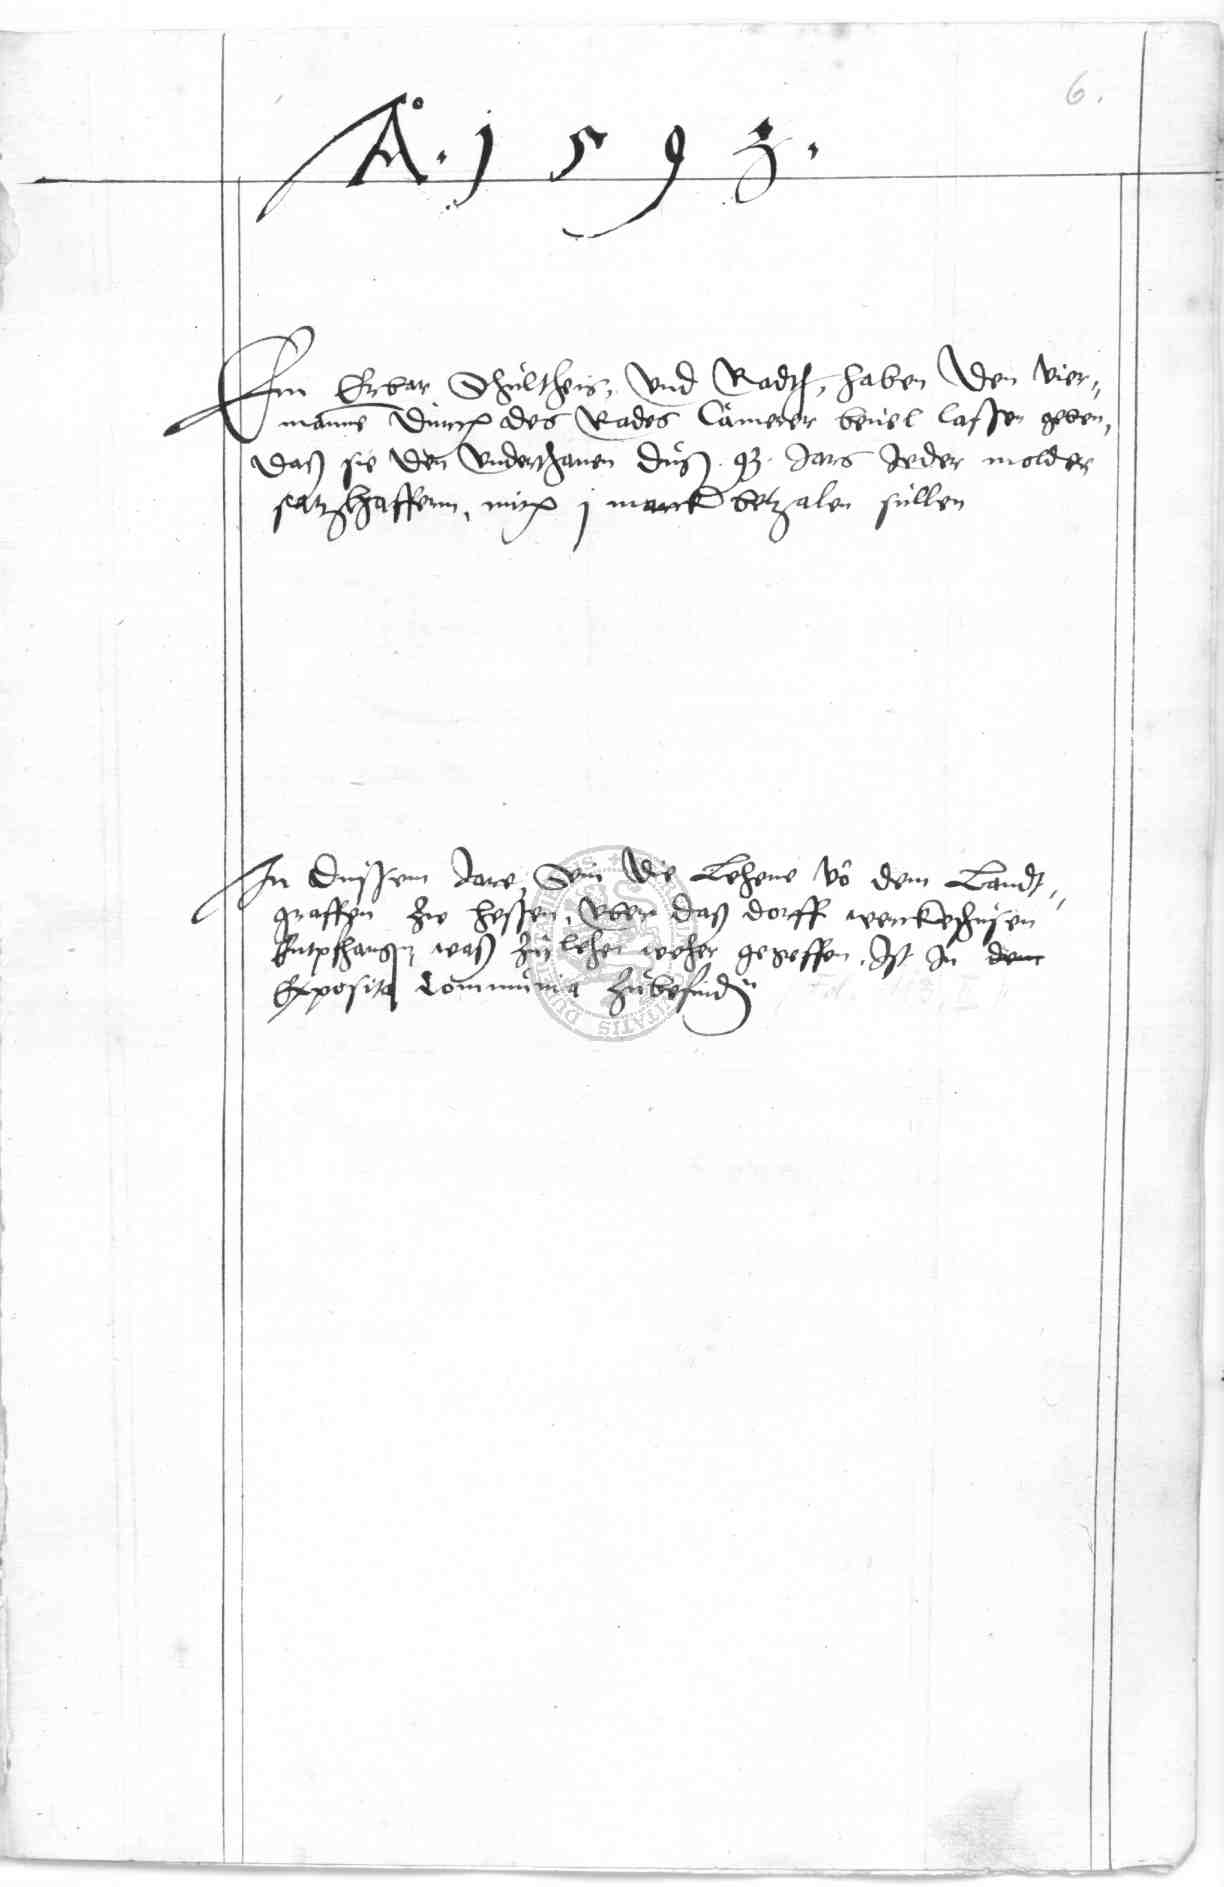 6.
A° . 1 5 9 3 .
Ein Erbar Schultheis, Vnd Radth, haben den Vier¬
manne durch des Rades Cämerer beuel lassen geben,
daß sie den Vnderthanen duß . 93 . Jars Jeder molder
saltzhaffern, mitt j marck betzalen sullen
In dussem Jare, Sein die Lehene vô dem Landt¬
graffen zu hessen, Vber daß dorff werckeshusen
Entpfhangen, waß zu lehen weher gegeffen, Ist In dem
Exposita Communia zubefinden